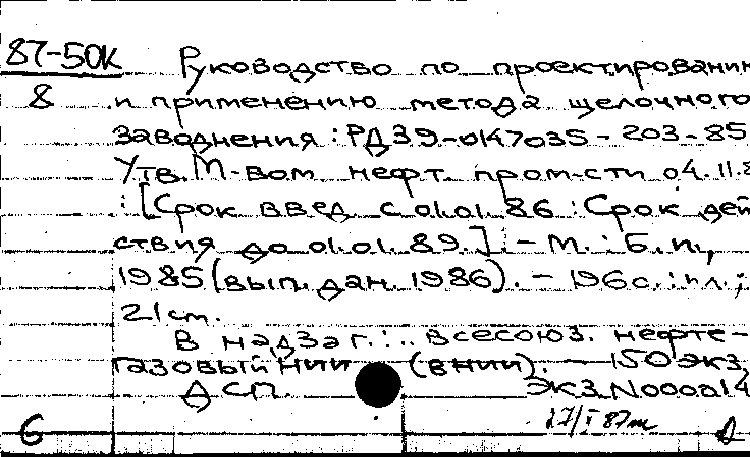 87-50К Руководство по проектированию
8 и применению метода щелочного
заводнения : РД39-0147035-203-85
Утв. М-вом нефт. пром-сти 04.11.8
: [Срок введ. с 01.01.86 : Срок дей
ствия до 01.01.89.]. - М. : Б. и.,
1985 (вып. дан. 1986). - 196 с. : ил. ;
21 см.
В надзаг. : .. всесоюз. нефте-
газовый НИИ (ВНИИ). - 150 экз.
ДСП. Экз. N000014
27/I 87
6